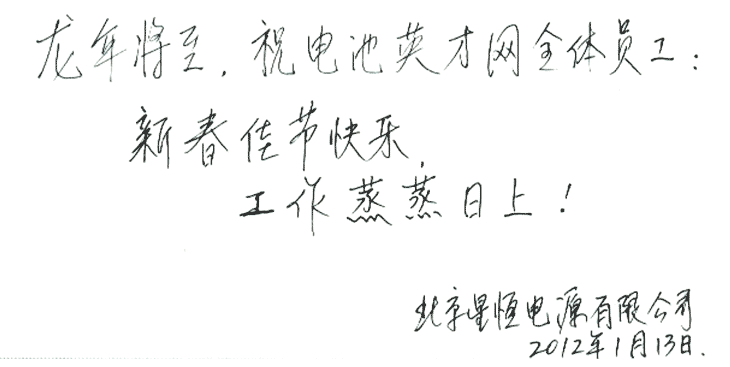 龙年将至，祝电池英才网全体员工：
新春佳节快乐，
工作蒸蒸日上！
北京星恒电源有限公司
2012年1月13日.